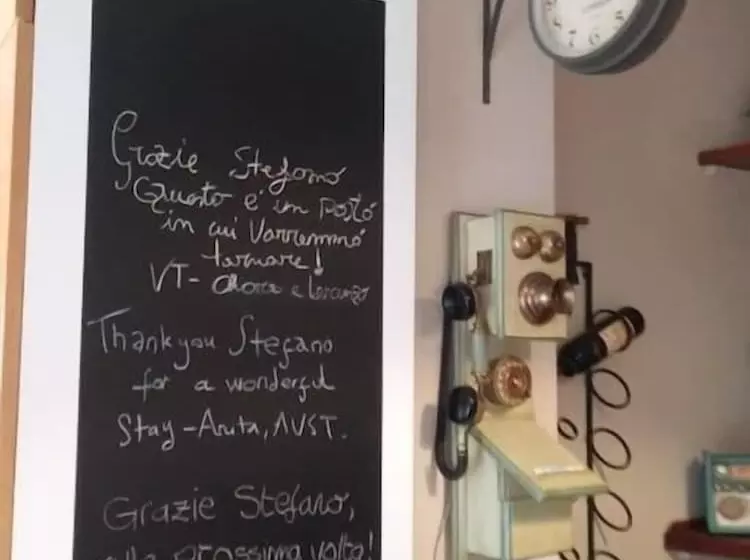 Grazie Stefano
Questo è un posto
in cui Vorremmo
tornare!
VT- e Lorenzo
Thank you Stefano
for a wonderful
Stay - Anita, AUST.
Grazie Stefano,
alla prossima volta!